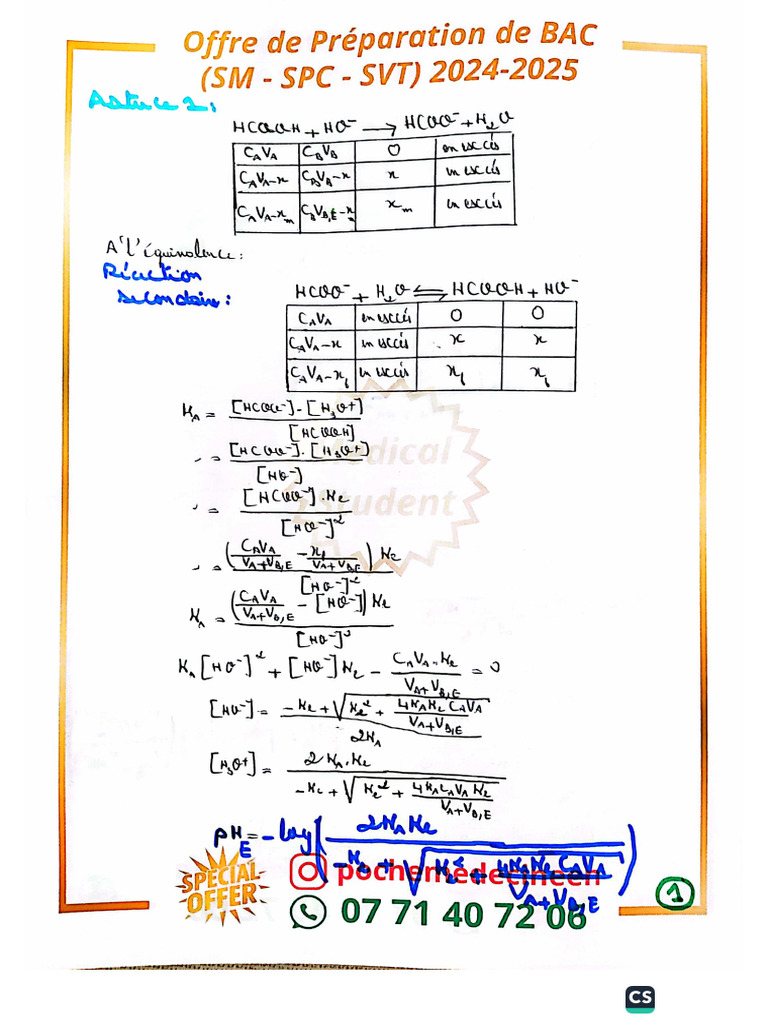 Offre de Préparation de BAC
(SM - SPC - SVT) 2024-2025
Astuce 1:
HCOOH + HO⁻ → HCOO⁻ + H₂O
C_AV_A | C_BV_B | 0 | en excés
C_AV_A-x | C_BV_B-x | x | en excés
C_AV_A-x_m | C_BV_B,E-x_m | x_m | en excés
A l'équivalence:
Réaction
secondaire:
HCOO⁻ + H₂O ⇌ HCOOH + HO⁻
C_AV_A | en excés | 0 | 0
C_AV_A-x | en excés | x | x
C_AV_A-x_f | en excés | x_f | x_f
K_A = [HCOO⁻].[H₃O⁺] / [HCOOH]
" = [HCOO⁻].[H₃O⁺] / [HO⁻]
" = [HCOO⁻].Ke / [HO⁻]²
" = (C_AV_A/(V_A+V_B,E) - x_f/(V_A+V_B,E)) Ke / [HO⁻]²
K_A = (C_AV_A/(V_A+V_B,E) - [HO⁻]) Ke / [HO⁻]²
K_A[HO⁻]² + [HO⁻]Ke - C_AV_A.Ke/(V_A+V_B,E) = 0
[HO⁻] = (-Ke + √(Ke² + 4K_AKe C_AV_A/(V_A+V_B,E))) / 2K_A
[H₃O⁺] = 2K_A.Ke / (-Ke + √(Ke² + 4K_AC_AV_A Ke/(V_A+V_B,E)))
pH_E = -log(2K_AKe / (-Ke + √(Ke² + 4K_AKe C_AV_A/(V_A+V_B,E))))
Medical
Student
SPECIAL
OFFER
pochemedecineen
07 71 40 72 06
1
CS